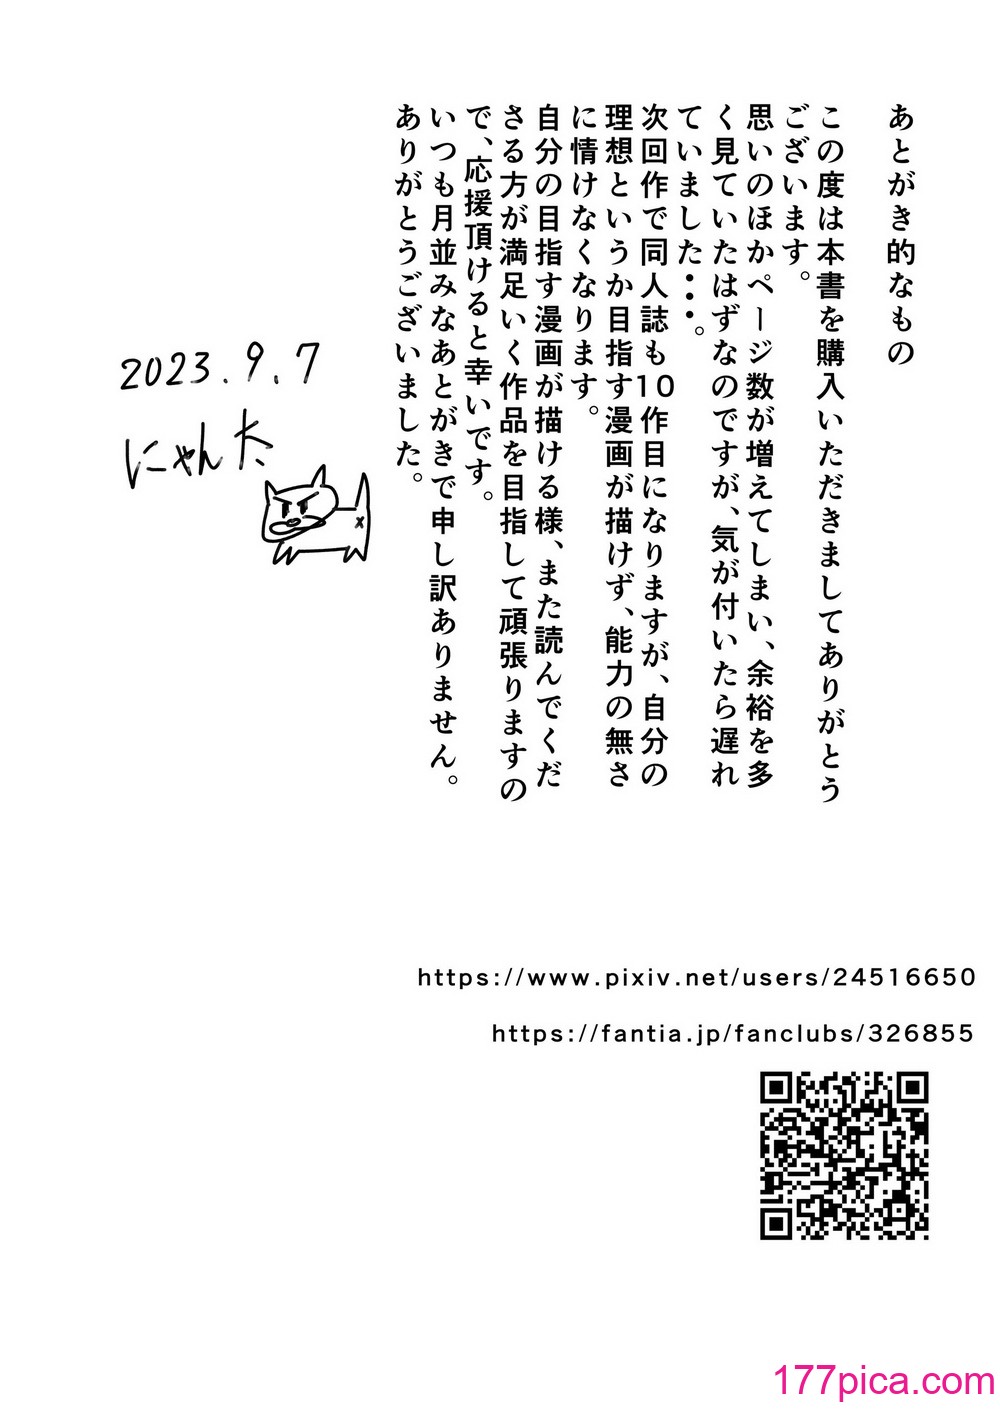 あとがき的なもの
この度は本書を購入いただきましてありがとう
ございます。
思いのほかページ数が増えてしまい、余裕を多
く見ていたはずなのですが、気が付いたら遅れ
ていました・・・。
次回作で同人誌も10作目になりますが、自分の
理想というか目指す漫画が描けず、能力の無さ
に情けなくなります。
自分の目指す漫画が描ける様、また読んでくだ
さる方が満足いく作品を目指して頑張りますの
で、応援頂けると幸いです。
いつも月並みなあとがきで申し訳ありません。
ありがとうございました。
2023.9.7
にゃんた
https://www.pixiv.net/users/24516650
https://fantia.jp/fanclubs/326855
177pica.com